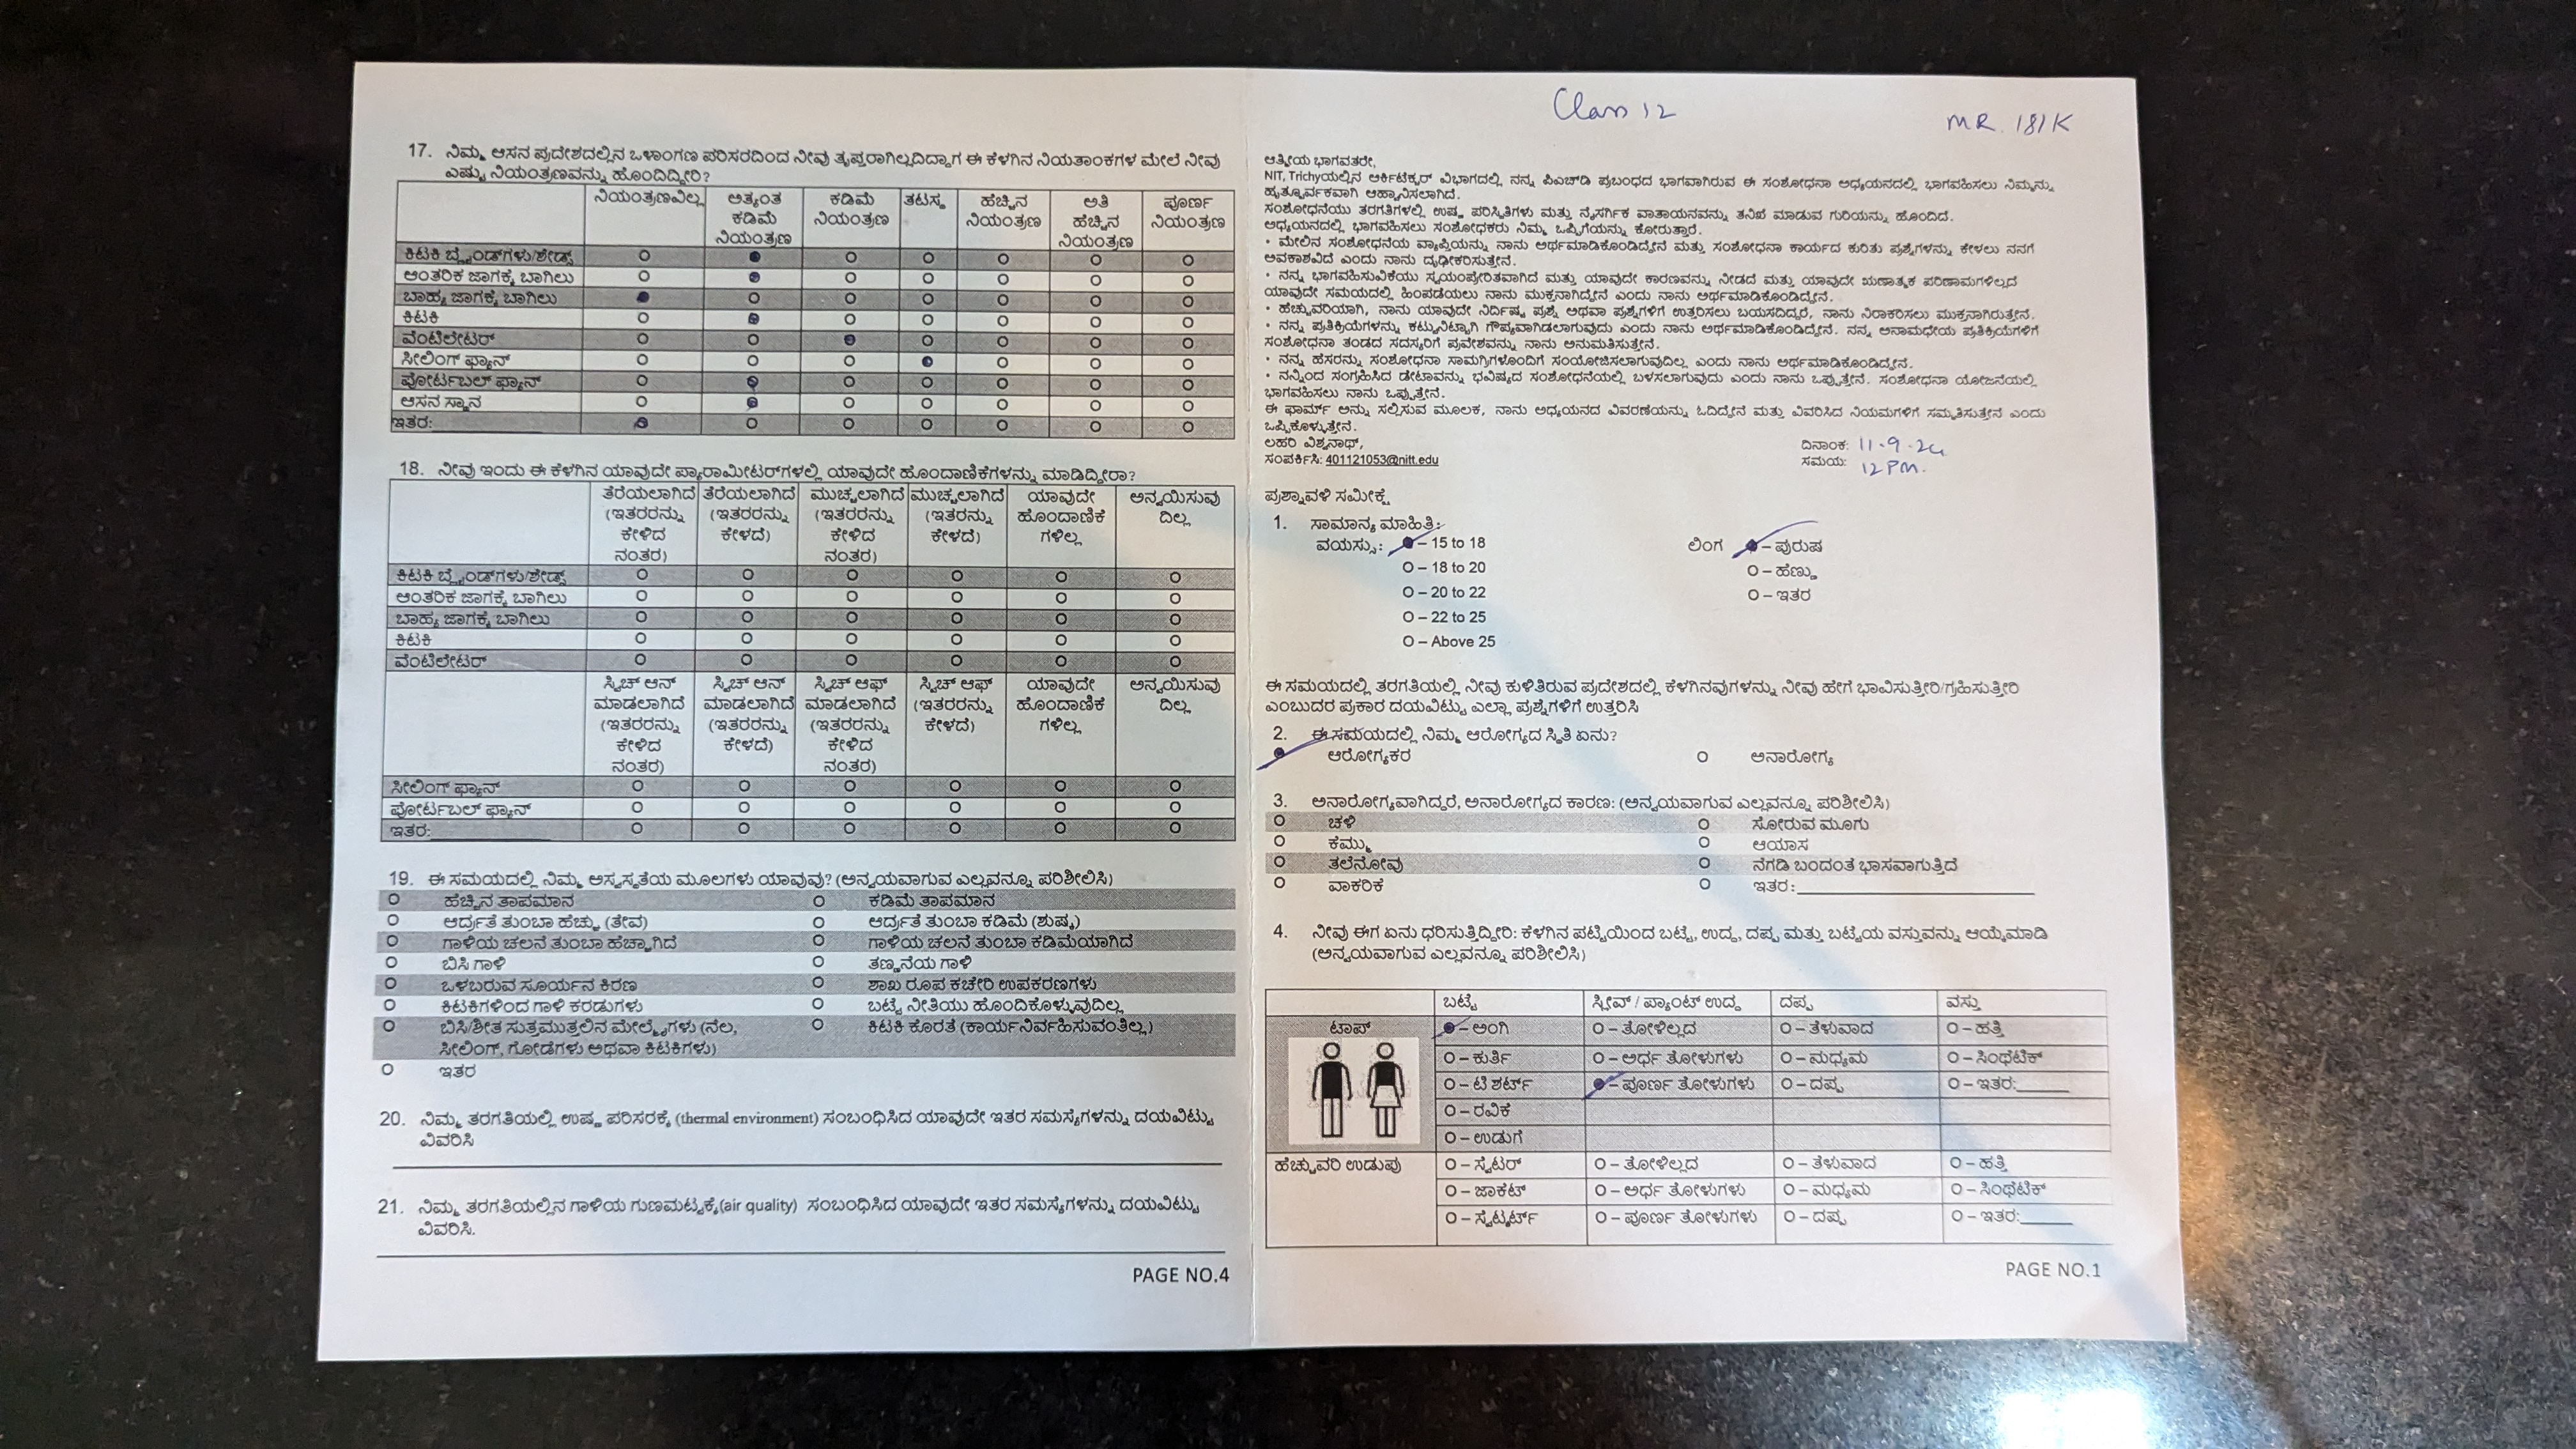 17. ನಿಮ್ಮ ಆಸನ ಪ್ರದೇಶದಲ್ಲಿನ ಒಳಾಂಗಣ ಪರಿಸರದಿಂದ ನೀವು ತೃಪ್ತರಾಗಿಲ್ಲದಿದ್ದಾಗ ಈ ಕೆಳಗಿನ ನಿಯತಾಂಕಗಳ ಮೇಲೆ ನೀವು
ಎಷ್ಟು ನಿಯಂತ್ರಣವನ್ನು ಹೊಂದಿದ್ದೀರಿ?
ನಿಯಂತ್ರಣವಿಲ್ಲ ಅತ್ಯಂತ ಕಡಿಮೆ ನಿಯಂತ್ರಣ ಕಡಿಮೆ ನಿಯಂತ್ರಣ ತಟಸ್ಥ ಹೆಚ್ಚಿನ ನಿಯಂತ್ರಣ ಅತಿ ಹೆಚ್ಚಿನ ನಿಯಂತ್ರಣ ಪೂರ್ಣ ನಿಯಂತ್ರಣ
ಕಿಟಕಿ ಬ್ಲೈಂಡ್‌ಗಳು/ಶೇಡ್ಸ್
ಆಂತರಿಕ ಜಾಗಕ್ಕೆ ಬಾಗಿಲು
ಬಾಹ್ಯ ಜಾಗಕ್ಕೆ ಬಾಗಿಲು
ಕಿಟಕಿ
ವೆಂಟಿಲೇಟರ್
ಸೀಲಿಂಗ್ ಫ್ಯಾನ್
ಪೋರ್ಟಬಲ್ ಫ್ಯಾನ್
ಆಸನ ಸ್ಥಾನ
ಇತರ:
18. ನೀವು ಇಂದು ಈ ಕೆಳಗಿನ ಯಾವುದೇ ಪ್ಯಾರಾಮೀಟರ್‌ಗಳಲ್ಲಿ ಯಾವುದೇ ಹೊಂದಾಣಿಕೆಗಳನ್ನು ಮಾಡಿದ್ದೀರಾ?
ತೆರೆಯಲಾಗಿದೆ (ಇತರರನ್ನು ಕೇಳಿದ ನಂತರ) ತೆರೆಯಲಾಗಿದೆ (ಇತರರನ್ನು ಕೇಳದೆ) ಮುಚ್ಚಲಾಗಿದೆ (ಇತರರನ್ನು ಕೇಳಿದ ನಂತರ) ಮುಚ್ಚಲಾಗಿದೆ (ಇತರನ್ನು ಕೇಳದೆ) ಯಾವುದೇ ಹೊಂದಾಣಿಕೆ ಗಳಿಲ್ಲ ಅನ್ವಯಿಸುವು ದಿಲ್ಲ
ಕಿಟಕಿ ಬ್ಲೈಂಡ್‌ಗಳು/ಶೇಡ್ಸ್
ಆಂತರಿಕ ಜಾಗಕ್ಕೆ ಬಾಗಿಲು
ಬಾಹ್ಯ ಜಾಗಕ್ಕೆ ಬಾಗಿಲು
ಕಿಟಕಿ
ವೆಂಟಿಲೇಟರ್
ಸ್ವಿಚ್ ಆನ್ ಮಾಡಲಾಗಿದೆ (ಇತರರನ್ನು ಕೇಳಿದ ನಂತರ) ಸ್ವಿಚ್ ಆನ್ ಮಾಡಲಾಗಿದೆ (ಇತರರನ್ನು ಕೇಳದೆ) ಸ್ವಿಚ್ ಆಫ್ ಮಾಡಲಾಗಿದೆ (ಇತರರನ್ನು ಕೇಳಿದ ನಂತರ) ಸ್ವಿಚ್ ಆಫ್ (ಇತರರನ್ನು ಕೇಳದೆ) ಯಾವುದೇ ಹೊಂದಾಣಿಕೆ ಗಳಿಲ್ಲ ಅನ್ವಯಿಸುವು ದಿಲ್ಲ
ಸೀಲಿಂಗ್ ಫ್ಯಾನ್
ಪೋರ್ಟಬಲ್ ಫ್ಯಾನ್
ಇತರ:
19. ಈ ಸಮಯದಲ್ಲಿ ನಿಮ್ಮ ಅಸ್ವಸ್ಥತೆಯ ಮೂಲಗಳು ಯಾವುವು? (ಅನ್ವಯವಾಗುವ ಎಲ್ಲವನ್ನೂ ಪರಿಶೀಲಿಸಿ)
ಹೆಚ್ಚಿನ ತಾಪಮಾನ ಕಡಿಮೆ ತಾಪಮಾನ
ಆರ್ದ್ರತೆ ತುಂಬಾ ಹೆಚ್ಚು (ತೇವ) ಆರ್ದ್ರತೆ ತುಂಬಾ ಕಡಿಮೆ (ಶುಷ್ಕ)
ಗಾಳಿಯ ಚಲನೆ ತುಂಬಾ ಹೆಚ್ಚಾಗಿದೆ ಗಾಳಿಯ ಚಲನೆ ತುಂಬಾ ಕಡಿಮೆಯಾಗಿದೆ
ಬಿಸಿ ಗಾಳಿ ತಣ್ಣನೆಯ ಗಾಳಿ
ಒಳಬರುವ ಸೂರ್ಯನ ಕಿರಣ ಶಾಖ ರೂಪ ಕಚೇರಿ ಉಪಕರಣಗಳು
ಕಿಟಕಿಗಳಿಂದ ಗಾಳಿ ಕರಡುಗಳು ಬಟ್ಟೆ ನೀತಿಯು ಹೊಂದಿಕೊಳ್ಳುವುದಿಲ್ಲ
ಬಿಸಿ/ಶೀತ ಸುತ್ತಮುತ್ತಲಿನ ಮೇಲ್ಮೈಗಳು (ನೆಲ, ಕಿಟಕಿ ಕೊರತೆ (ಕಾರ್ಯನಿರ್ವಹಿಸುವಂತಿಲ್ಲ)
ಸೀಲಿಂಗ್, ಗೋಡೆಗಳು ಅಥವಾ ಕಿಟಕಿಗಳು)
ಇತರ
20. ನಿಮ್ಮ ತರಗತಿಯಲ್ಲಿ ಉಷ್ಣ ಪರಿಸರಕ್ಕೆ (thermal environment) ಸಂಬಂಧಿಸಿದ ಯಾವುದೇ ಇತರ ಸಮಸ್ಯೆಗಳನ್ನು ದಯವಿಟ್ಟು
ವಿವರಿಸಿ
21. ನಿಮ್ಮ ತರಗತಿಯಲ್ಲಿನ ಗಾಳಿಯ ಗುಣಮಟ್ಟಕ್ಕೆ(air quality) ಸಂಬಂಧಿಸಿದ ಯಾವುದೇ ಇತರ ಸಮಸ್ಯೆಗಳನ್ನು ದಯವಿಟ್ಟು
ವಿವರಿಸಿ.
PAGE NO.4
Class 12
MR. 181K
ಆತ್ಮೀಯ ಭಾಗವತರೇ,
NIT, Trichyಯಲ್ಲಿನ ಆರ್ಕಿಟೆಕ್ಚರ್ ವಿಭಾಗದಲ್ಲಿ ನನ್ನ ಪಿಎಚ್‌ಡಿ ಪ್ರಬಂಧದ ಭಾಗವಾಗಿರುವ ಈ ಸಂಶೋಧನಾ ಅಧ್ಯಯನದಲ್ಲಿ ಭಾಗವಹಿಸಲು ನಿಮ್ಮನ್ನು
ಹೃತ್ಪೂರ್ವಕವಾಗಿ ಆಹ್ವಾನಿಸಲಾಗಿದೆ.
ಸಂಶೋಧನೆಯು ತರಗತಿಗಳಲ್ಲಿ ಉಷ್ಣ ಪರಿಸ್ಥಿತಿಗಳು ಮತ್ತು ನೈಸರ್ಗಿಕ ವಾತಾಯನವನ್ನು ತನಿಖೆ ಮಾಡುವ ಗುರಿಯನ್ನು ಹೊಂದಿದೆ.
ಅಧ್ಯಯನದಲ್ಲಿ ಭಾಗವಹಿಸಲು ಸಂಶೋಧಕರು ನಿಮ್ಮ ಒಪ್ಪಿಗೆಯನ್ನು ಕೋರುತ್ತಾರೆ.
• ಮೇಲಿನ ಸಂಶೋಧನೆಯ ವ್ಯಾಪ್ತಿಯನ್ನು ನಾನು ಅರ್ಥಮಾಡಿಕೊಂಡಿದ್ದೇನೆ ಮತ್ತು ಸಂಶೋಧನಾ ಕಾರ್ಯದ ಕುರಿತು ಪ್ರಶ್ನೆಗಳನ್ನು ಕೇಳಲು ನನಗೆ
ಅವಕಾಶವಿದೆ ಎಂದು ನಾನು ದೃಢೀಕರಿಸುತ್ತೇನೆ.
• ನನ್ನ ಭಾಗವಹಿಸುವಿಕೆಯು ಸ್ವಯಂಪ್ರೇರಿತವಾಗಿದೆ ಮತ್ತು ಯಾವುದೇ ಕಾರಣವನ್ನು ನೀಡದೆ ಮತ್ತು ಯಾವುದೇ ಋಣಾತ್ಮಕ ಪರಿಣಾಮಗಳಿಲ್ಲದೆ
ಯಾವುದೇ ಸಮಯದಲ್ಲಿ ಹಿಂಪಡೆಯಲು ನಾನು ಮುಕ್ತನಾಗಿದ್ದೇನೆ ಎಂದು ನಾನು ಅರ್ಥಮಾಡಿಕೊಂಡಿದ್ದೇನೆ.
• ಹೆಚ್ಚುವರಿಯಾಗಿ, ನಾನು ಯಾವುದೇ ನಿರ್ದಿಷ್ಟ ಪ್ರಶ್ನೆ ಅಥವಾ ಪ್ರಶ್ನೆಗಳಿಗೆ ಉತ್ತರಿಸಲು ಬಯಸದಿದ್ದರೆ, ನಾನು ನಿರಾಕರಿಸಲು ಮುಕ್ತನಾಗಿರುತ್ತೇನೆ.
• ನನ್ನ ಪ್ರತಿಕ್ರಿಯೆಗಳನ್ನು ಕಟ್ಟುನಿಟ್ಟಾಗಿ ಗೌಪ್ಯವಾಗಿಡಲಾಗುವುದು ಎಂದು ನಾನು ಅರ್ಥಮಾಡಿಕೊಂಡಿದ್ದೇನೆ. ನನ್ನ ಅನಾಮಧೇಯ ಪ್ರತಿಕ್ರಿಯೆಗಳಿಗೆ
ಸಂಶೋಧನಾ ತಂಡದ ಸದಸ್ಯರಿಗೆ ಪ್ರವೇಶವನ್ನು ನಾನು ಅನುಮತಿಸುತ್ತೇನೆ.
• ನನ್ನ ಹೆಸರನ್ನು ಸಂಶೋಧನಾ ಸಾಮಗ್ರಿಗಳೊಂದಿಗೆ ಸಂಯೋಜಿಸಲಾಗುವುದಿಲ್ಲ ಎಂದು ನಾನು ಅರ್ಥಮಾಡಿಕೊಂಡಿದ್ದೇನೆ.
• ನನ್ನಿಂದ ಸಂಗ್ರಹಿಸಿದ ಡೇಟಾವನ್ನು ಭವಿಷ್ಯದ ಸಂಶೋಧನೆಯಲ್ಲಿ ಬಳಸಲಾಗುವುದು ಎಂದು ನಾನು ಒಪ್ಪುತ್ತೇನೆ. ಸಂಶೋಧನಾ ಯೋಜನೆಯಲ್ಲಿ
ಭಾಗವಹಿಸಲು ನಾನು ಒಪ್ಪುತ್ತೇನೆ.
ಈ ಫಾರ್ಮ್ ಅನ್ನು ಸಲ್ಲಿಸುವ ಮೂಲಕ, ನಾನು ಅಧ್ಯಯನದ ವಿವರಣೆಯನ್ನು ಓದಿದ್ದೇನೆ ಮತ್ತು ವಿವರಿಸಿದ ನಿಯಮಗಳಿಗೆ ಸಮ್ಮತಿಸುತ್ತೇನೆ ಎಂದು
ಒಪ್ಪಿಕೊಳ್ಳುತ್ತೇನೆ.
ಲಹರಿ ವಿಶ್ವನಾಥ್, ದಿನಾಂಕ: 11.9.24
ಸಂಪರ್ಕಿಸಿ: 401121053@nitt.edu ಸಮಯ: 12 PM.
ಪ್ರಶ್ನಾವಳಿ ಸಮೀಕ್ಷೆ
1. ಸಾಮಾನ್ಯ ಮಾಹಿತಿ:
ವಯಸ್ಸು: – 15 to 18 ಲಿಂಗ – ಪುರುಷ
O – 18 to 20 O – ಹೆಣ್ಣು
O – 20 to 22 O – ಇತರ
O – 22 to 25
O – Above 25
ಈ ಸಮಯದಲ್ಲಿ ತರಗತಿಯಲ್ಲಿ ನೀವು ಕುಳಿತಿರುವ ಪ್ರದೇಶದಲ್ಲಿ ಕೆಳಗಿನವುಗಳನ್ನು ನೀವು ಹೇಗೆ ಭಾವಿಸುತ್ತೀರಿ/ಗ್ರಹಿಸುತ್ತೀರಿ
ಎಂಬುದರ ಪ್ರಕಾರ ದಯವಿಟ್ಟು ಎಲ್ಲಾ ಪ್ರಶ್ನೆಗಳಿಗೆ ಉತ್ತರಿಸಿ
2. ಈ ಸಮಯದಲ್ಲಿ ನಿಮ್ಮ ಆರೋಗ್ಯದ ಸ್ಥಿತಿ ಏನು?
ಆರೋಗ್ಯಕರ O ಅನಾರೋಗ್ಯ
3. ಅನಾರೋಗ್ಯವಾಗಿದ್ದರೆ, ಅನಾರೋಗ್ಯದ ಕಾರಣ: (ಅನ್ವಯವಾಗುವ ಎಲ್ಲವನ್ನೂ ಪರಿಶೀಲಿಸಿ)
O ಚಳಿ O ಸೋರುವ ಮೂಗು
O ಕೆಮ್ಮು O ಆಯಾಸ
O ತಲೆನೋವು O ನೆಗಡಿ ಬಂದಂತೆ ಭಾಸವಾಗುತ್ತಿದೆ
O ವಾಕರಿಕೆ O ಇತರ:
4. ನೀವು ಈಗ ಏನು ಧರಿಸುತ್ತಿದ್ದೀರಿ: ಕೆಳಗಿನ ಪಟ್ಟಿಯಿಂದ ಬಟ್ಟೆ, ಉದ್ದ, ದಪ್ಪ ಮತ್ತು ಬಟ್ಟೆಯ ವಸ್ತುವನ್ನು ಆಯ್ಕೆಮಾಡಿ
(ಅನ್ವಯವಾಗುವ ಎಲ್ಲವನ್ನೂ ಪರಿಶೀಲಿಸಿ)
ಬಟ್ಟೆ ಸ್ಲೀವ್ / ಪ್ಯಾಂಟ್ ಉದ್ದ ದಪ್ಪ ವಸ್ತು
ಟಾಪ್ – ಅಂಗಿ O – ತೋಳಿಲ್ಲದ O – ತೆಳುವಾದ O – ಹತ್ತಿ
O – ಕುರ್ತಿ O – ಅರ್ಧ ತೋಳುಗಳು O – ಮಧ್ಯಮ O – ಸಿಂಥೆಟಿಕ್
O – ಟಿ ಶರ್ಟ್ – ಪೂರ್ಣ ತೋಳುಗಳು O – ದಪ್ಪ O – ಇತರ:
O – ರವಿಕೆ
O – ಉಡುಗೆ
ಹೆಚ್ಚುವರಿ ಉಡುಪು O – ಸ್ವೆಟರ್ O – ತೋಳಿಲ್ಲದ O – ತೆಳುವಾದ O – ಹತ್ತಿ
O – ಜಾಕೆಟ್ O – ಅರ್ಧ ತೋಳುಗಳು O – ಮಧ್ಯಮ O – ಸಿಂಥೆಟಿಕ್
O – ಸ್ವೆಟ್ಶರ್ಟ್ O – ಪೂರ್ಣ ತೋಳುಗಳು O – ದಪ್ಪ O – ಇತರ:
PAGE NO.1